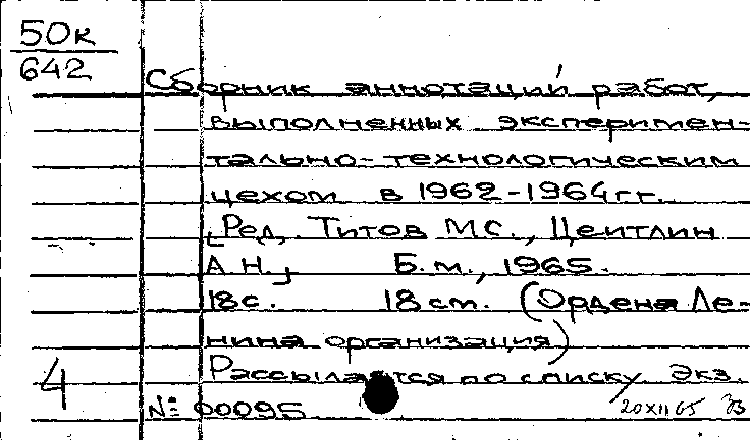 50к
642
Сборник аннотаций работ,
выполненных эксперимен-
тально-технологическим
цехом в 1962-1964 гг.
[Ред. Титов М.С., Цейтлин
А.Н.] Б.м., 1965.
18 с. 18 см. (Ордена Ле-
нина организация)
Рассылается по списку. Экз.
4
№ 00095
20 XII 65